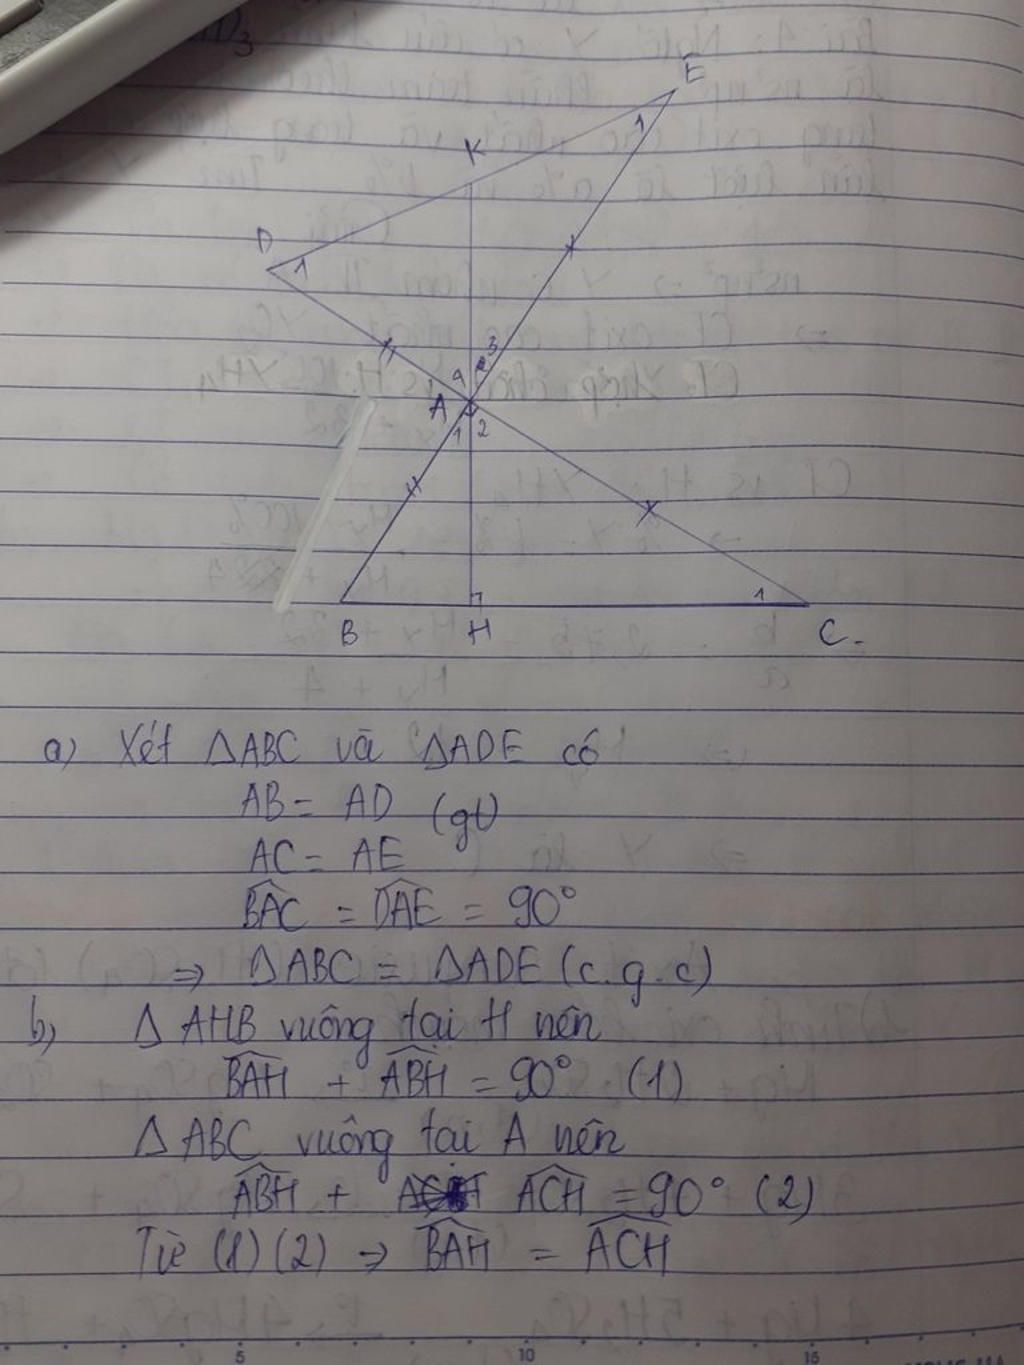 E
K
1
D
1
3
4 2
A
1 2
1
B H C.
a) Xét △ABC và △ADE có
AB = AD (gt)
AC = AE
BAC = DAE = 90°
⇒ △ABC = △ADE (c.g.c)
b, △ AHB vuông tại H nên
BAH + ABH = 90° (1)
△ ABC vuông tại A nên
ABH + ACH = 90° (2)
Từ (1) (2) ⇒ BAH = ACH
5 10 15